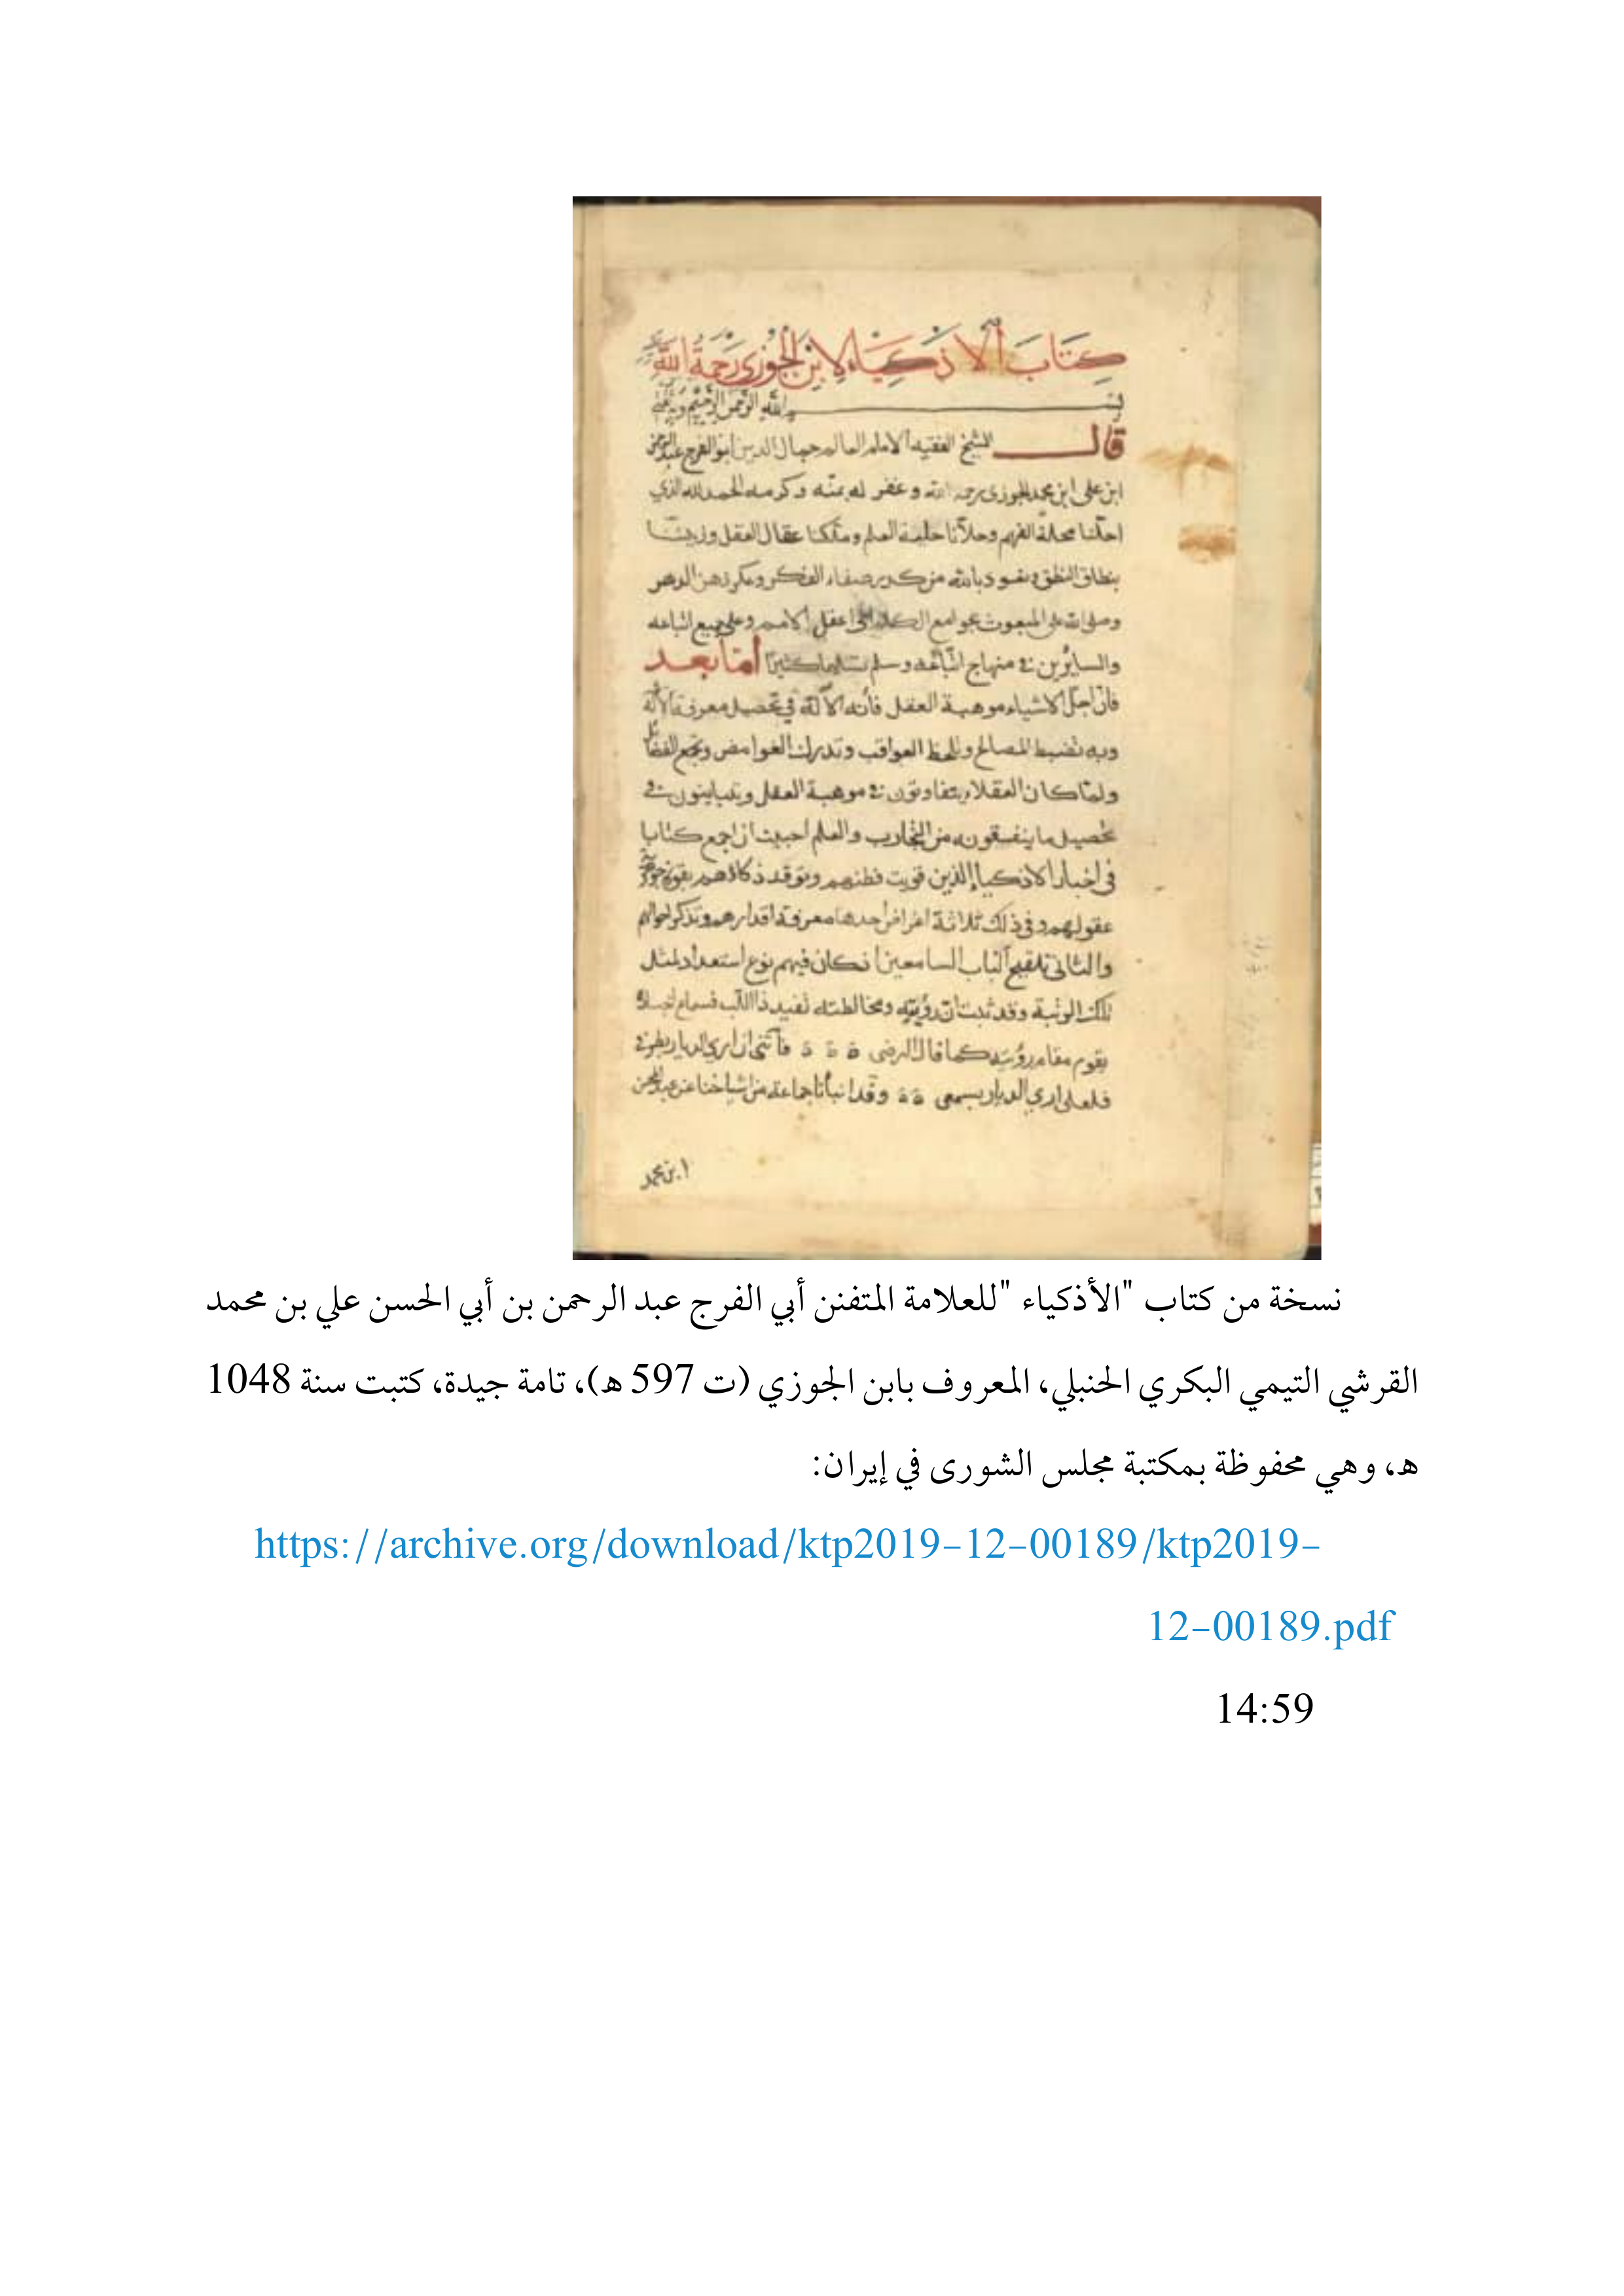 كتاب الاذكياء لابن الجوزي رحمة الله
بسم الله الرحمن الرحيم وبه ثقتي
قال الشيخ الفقيه الامام العالم جمال الدين ابو الفرج عبد الرحمن
ابن على ابن محمد الجوزى رحمه الله وغفر له بمنه وكرمه الحمد لله الذي
احلنا محلة الفهم وحلانا حلية العلم وملكنا عقال العقل وزيننا
بنطاق النطق ونعوذ بالله من كدر صفاء الفكر وعكر ذهن
وصلى الله على المبعوث بجوامع الكلم الى اعقل الامم وعلى جميع اتباعه
والسايرين في منهاج اتباعه وسلم تسليما كثيرا أما بعد
فان اجل الاشياء موهبة العقل فأنه الآلة في تحصيل معرفة الاله
وبه تضبط المصالح وتلحظ العواقب وتدرك الغوامض وتجمع الفضائل
ولما كان العقلاء يتفاوتون في موهبة العقل ويتباينون في
تحصيل ما ينفقونه من التجارب والعلم احببت ان اجمع كتابا
في اخبار الاذكياء الذين قويت فطنهم وتوقد ذكاؤهم بقوة جوهر
عقولهم وفي ذلك ثلاثة اغراض احدها معرفة اقدارهم وتذكر احوالهم
والثانى تلقيح ألباب السامعين ان كان فيهم نوع استعداد لمثل
تلك الرتبة وقد ثبت ان رؤيته ومخالطته تفيد ذا اللب فسماع اخباره
يقوم مقام رؤيته كما قال الرضى فآتني ان ارى الديار بطرفي
فلعلى ارى الديار بسمعى وقد انبأنا جماعة من اشياخنا عن
ابن محمد
نسخة من كتاب "الأذكياء "للعلامة المتفنن أبي الفرج عبد الرحمن بن أبي الحسن علي بن محمد
القرشي التيمي البكري الحنبلي، المعروف بابن الجوزي (ت 597 هـ)، تامة جيدة، كتبت سنة 1048
هـ، وهي محفوظة بمكتبة مجلس الشورى في إيران:
https://archive.org/download/ktp2019-12-00189/ktp2019-
12-00189.pdf
14:59